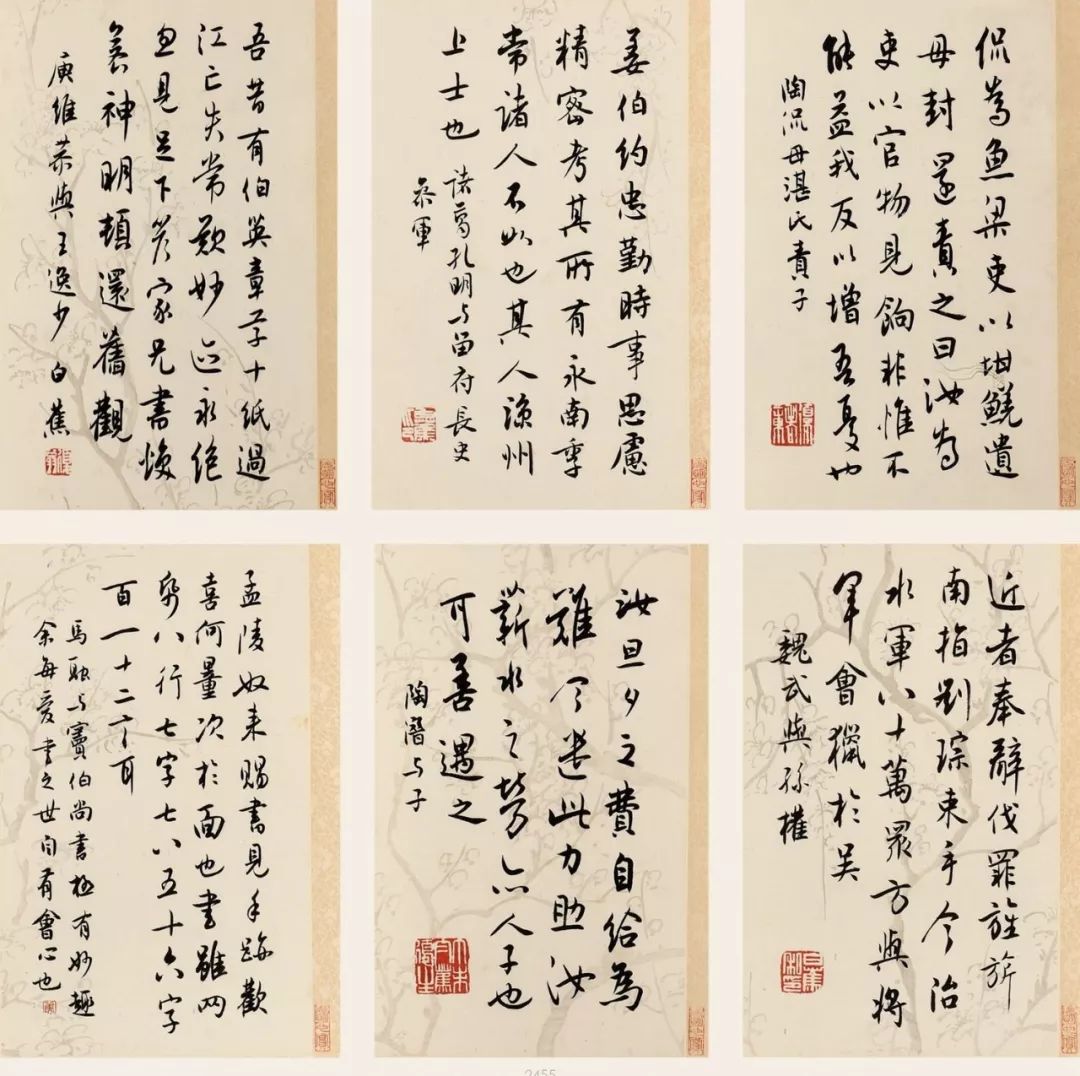 侃為魚梁吏以坩鮓遺
母封還責之曰汝為
吏以官物見餉非惟不
能益我反以增吾憂也
陶侃母湛氏責子
姜伯約忠勤時事思慮
精密考其所有永南季
常諸人不如也其人涼州
上士也
諸葛孔明与留府長史
參軍
吾昔有伯英章草十紙過
江亡失常歎妙迹永絕
忽見足下答家兄書煥
若神明頓還舊觀
庾稚恭與王逸少 白蕉
近者奉辭伐罪旌旂
南指劉琮束手今治
水軍八十萬眾方與將
軍會獵於吴
魏武與孫權
白蕉私印
汝旦夕之費自給為
難今遣此力助汝
薪水之勞亦人子也
可善遇之
陶潛与子
孟陵奴來賜書見手跡歡
喜何量次於面也書雖兩
紙八行七字七八五十六字
百一十二言耳
馬融与竇伯尚書極有妙趣
余每愛書之世自有會心也
2455